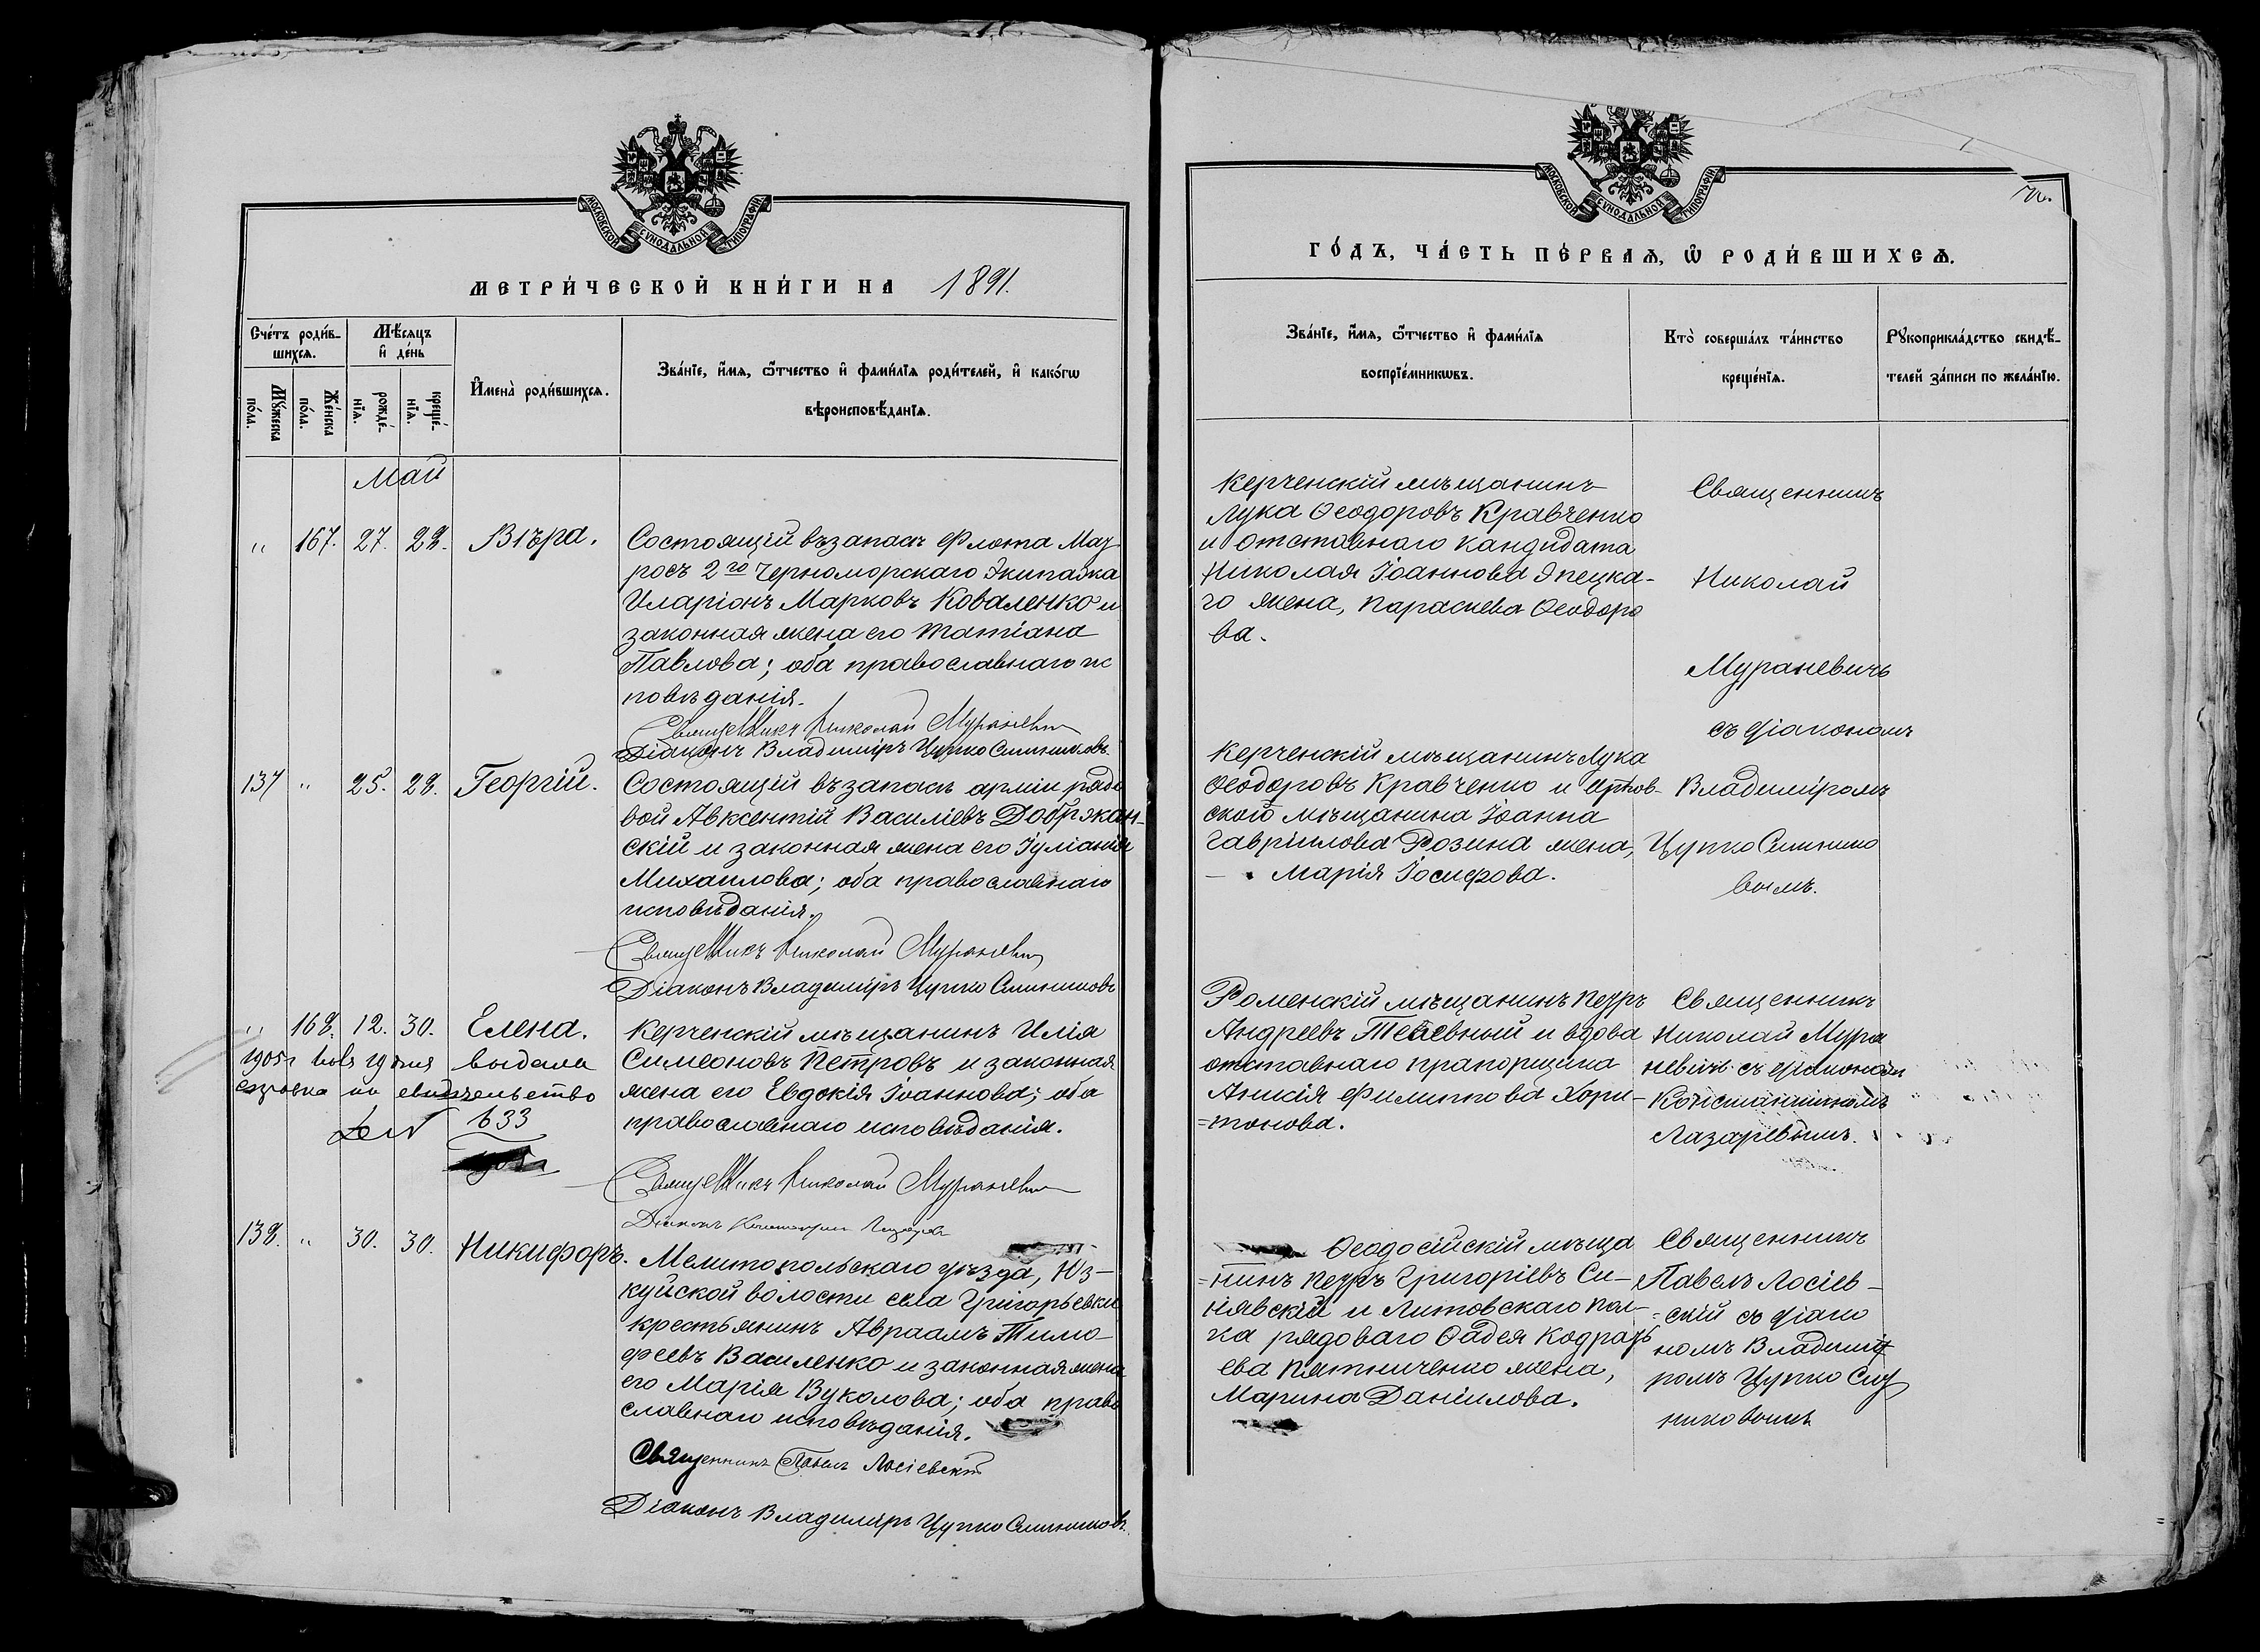 МОСКОВСКОЙ СѴНОДАЛЬНОЙ ТИПОГРАФІИ
МЕТРИ́ЧЕСКОЙ КНИ́ГИ НА 1891.
Сче́тъ роди́в-
шихсѧ.
Мꙋ́жеска
по́ла.
Же́нска
по́ла.
Мѣ́сѧцъ
и҆ де́нь
рожде́-
нїѧ.
креще́-
нїѧ.
И҆мена̀ роди́вшихсѧ.
Зва́нїе, и҆́мѧ, ѻ҆́тчество и҆ фами́лїѧ роди́телей, и҆ како́гѡ
вѣроисповѣ́данїѧ.
Май
" 167. 27. 28. Вѣра.
Состоящій въ запасѣ Флота Мат
росъ 2го Черноморскаго Экипажа
Иларіонъ Марковъ Коваленко и
законная жена его Татіана
Павлова; оба православнаго ис
повѣданія.
Священникъ Николай Мураневич
Діаконъ Владиміръ Цупко Ситниковъ
137 " 25. 28. Георгій.
Состоящій въ запасѣ арміи рядо
вой Авксентій Василіевъ Добржан-
скій и законная жена его Іуліанія
Михаилова; оба православнаго
исповѣданія.
Священникъ Николай Мураневич
Діаконъ Владиміръ Цупко Ситниковъ
" 168. 12. 30. Елена.
Керченскій мѣщанинъ Илія
Симеоновъ Петровъ и законная
жена его Евдокія Іоаннова; оба
православнаго исповѣданія.
1905 г 19 дня выдана
свидѣтельство
633
Священникъ Николай Мураневич
Діаконъ
138. " 30. 30. Никифоръ.
Мелитопольскаго уѣзда, Юз-
куйской волости села Григорьевки
крестьянинъ Авраамъ Тимо-
феевъ Василенко и законная жена
его Марія Вуколова; оба право
славнаго исповѣданія.
Священникъ Павелъ Лосіевскій
Діаконъ Владиміръ Цупко Ситниковъ
МОСКОВСКОЙ СѴНОДАЛЬНОЙ ТИПОГРАФІИ
ГО́ДЪ, ЧА́СТЬ ПЕ́РВАѦ, Ѡ҆ РОДИ́ВШИХСѦ.
Зва́нїе, и҆́мѧ, ѻ҆́тчество и҆ фами́лїѧ
воспрїе́мникѡвъ.
Кто̀ соверша́лъ та́инство
креще́нїѧ.
Рꙋкоприкла́дство свидѣ́-
телей за́писи по жела́нїю.
Керченскій мѣщанинъ
Лука Ѳеодоровъ Кравченко
и отставнаго кандидата
Николая Іоаннова Япецка-
го жена, Параскева Ѳеодоро
ва.
Священникъ
Николай
Мураневичъ
съ діакономъ
Владиміромъ
Цупко Ситнико
вымъ.
Керченскій мѣщанинъ Лука
Ѳеодоровъ Кравченко и
скаго мѣщанина Іоанна
Гавріилова Розина жена,
Марія Іосифова.
Роменскій мѣщанинъ Петръ
Андреевъ и вдова
отставнаго прапорщика
Филиппова Хари-
=тонова.
Священникъ
Николай Мура
невичъ съ діакономъ
Константиномъ
Лазаревымъ.
Ѳеодосійскій мѣща
=нинъ Петръ Григоріевъ Си-
нявскій и Литовскаго пол-
ка рядоваго Ѳадея Кодрать
ева Пятниченко жена,
Марина Даніилова.
Священникъ
Павелъ Лосіев-
=скій съ діако
номъ Владимі
ромъ Цупко Сит
никовымъ